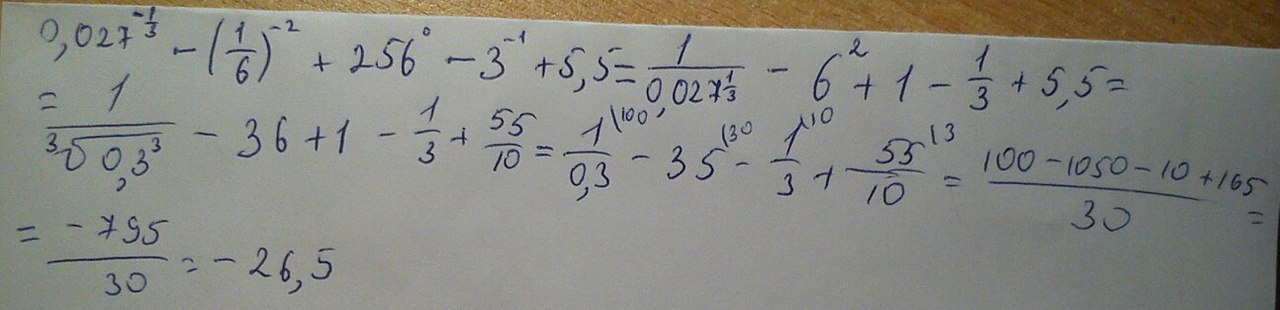 0,027^{-1/3} - (1/6)^{-2} + 256^0 - 3^{-1} + 5,5 = 1/0,027^{1/3} - 6^2 + 1 - 1/3 + 5,5 =
= 1/∛(0,3^3) - 36 + 1 - 1/3 + 55/10 = 1/0,3 (100 - 35 (30 - 1/3 (10 + 55/10 (3 = (100 - 1050 - 10 + 165)/30 =
= -795/30 = -26,5